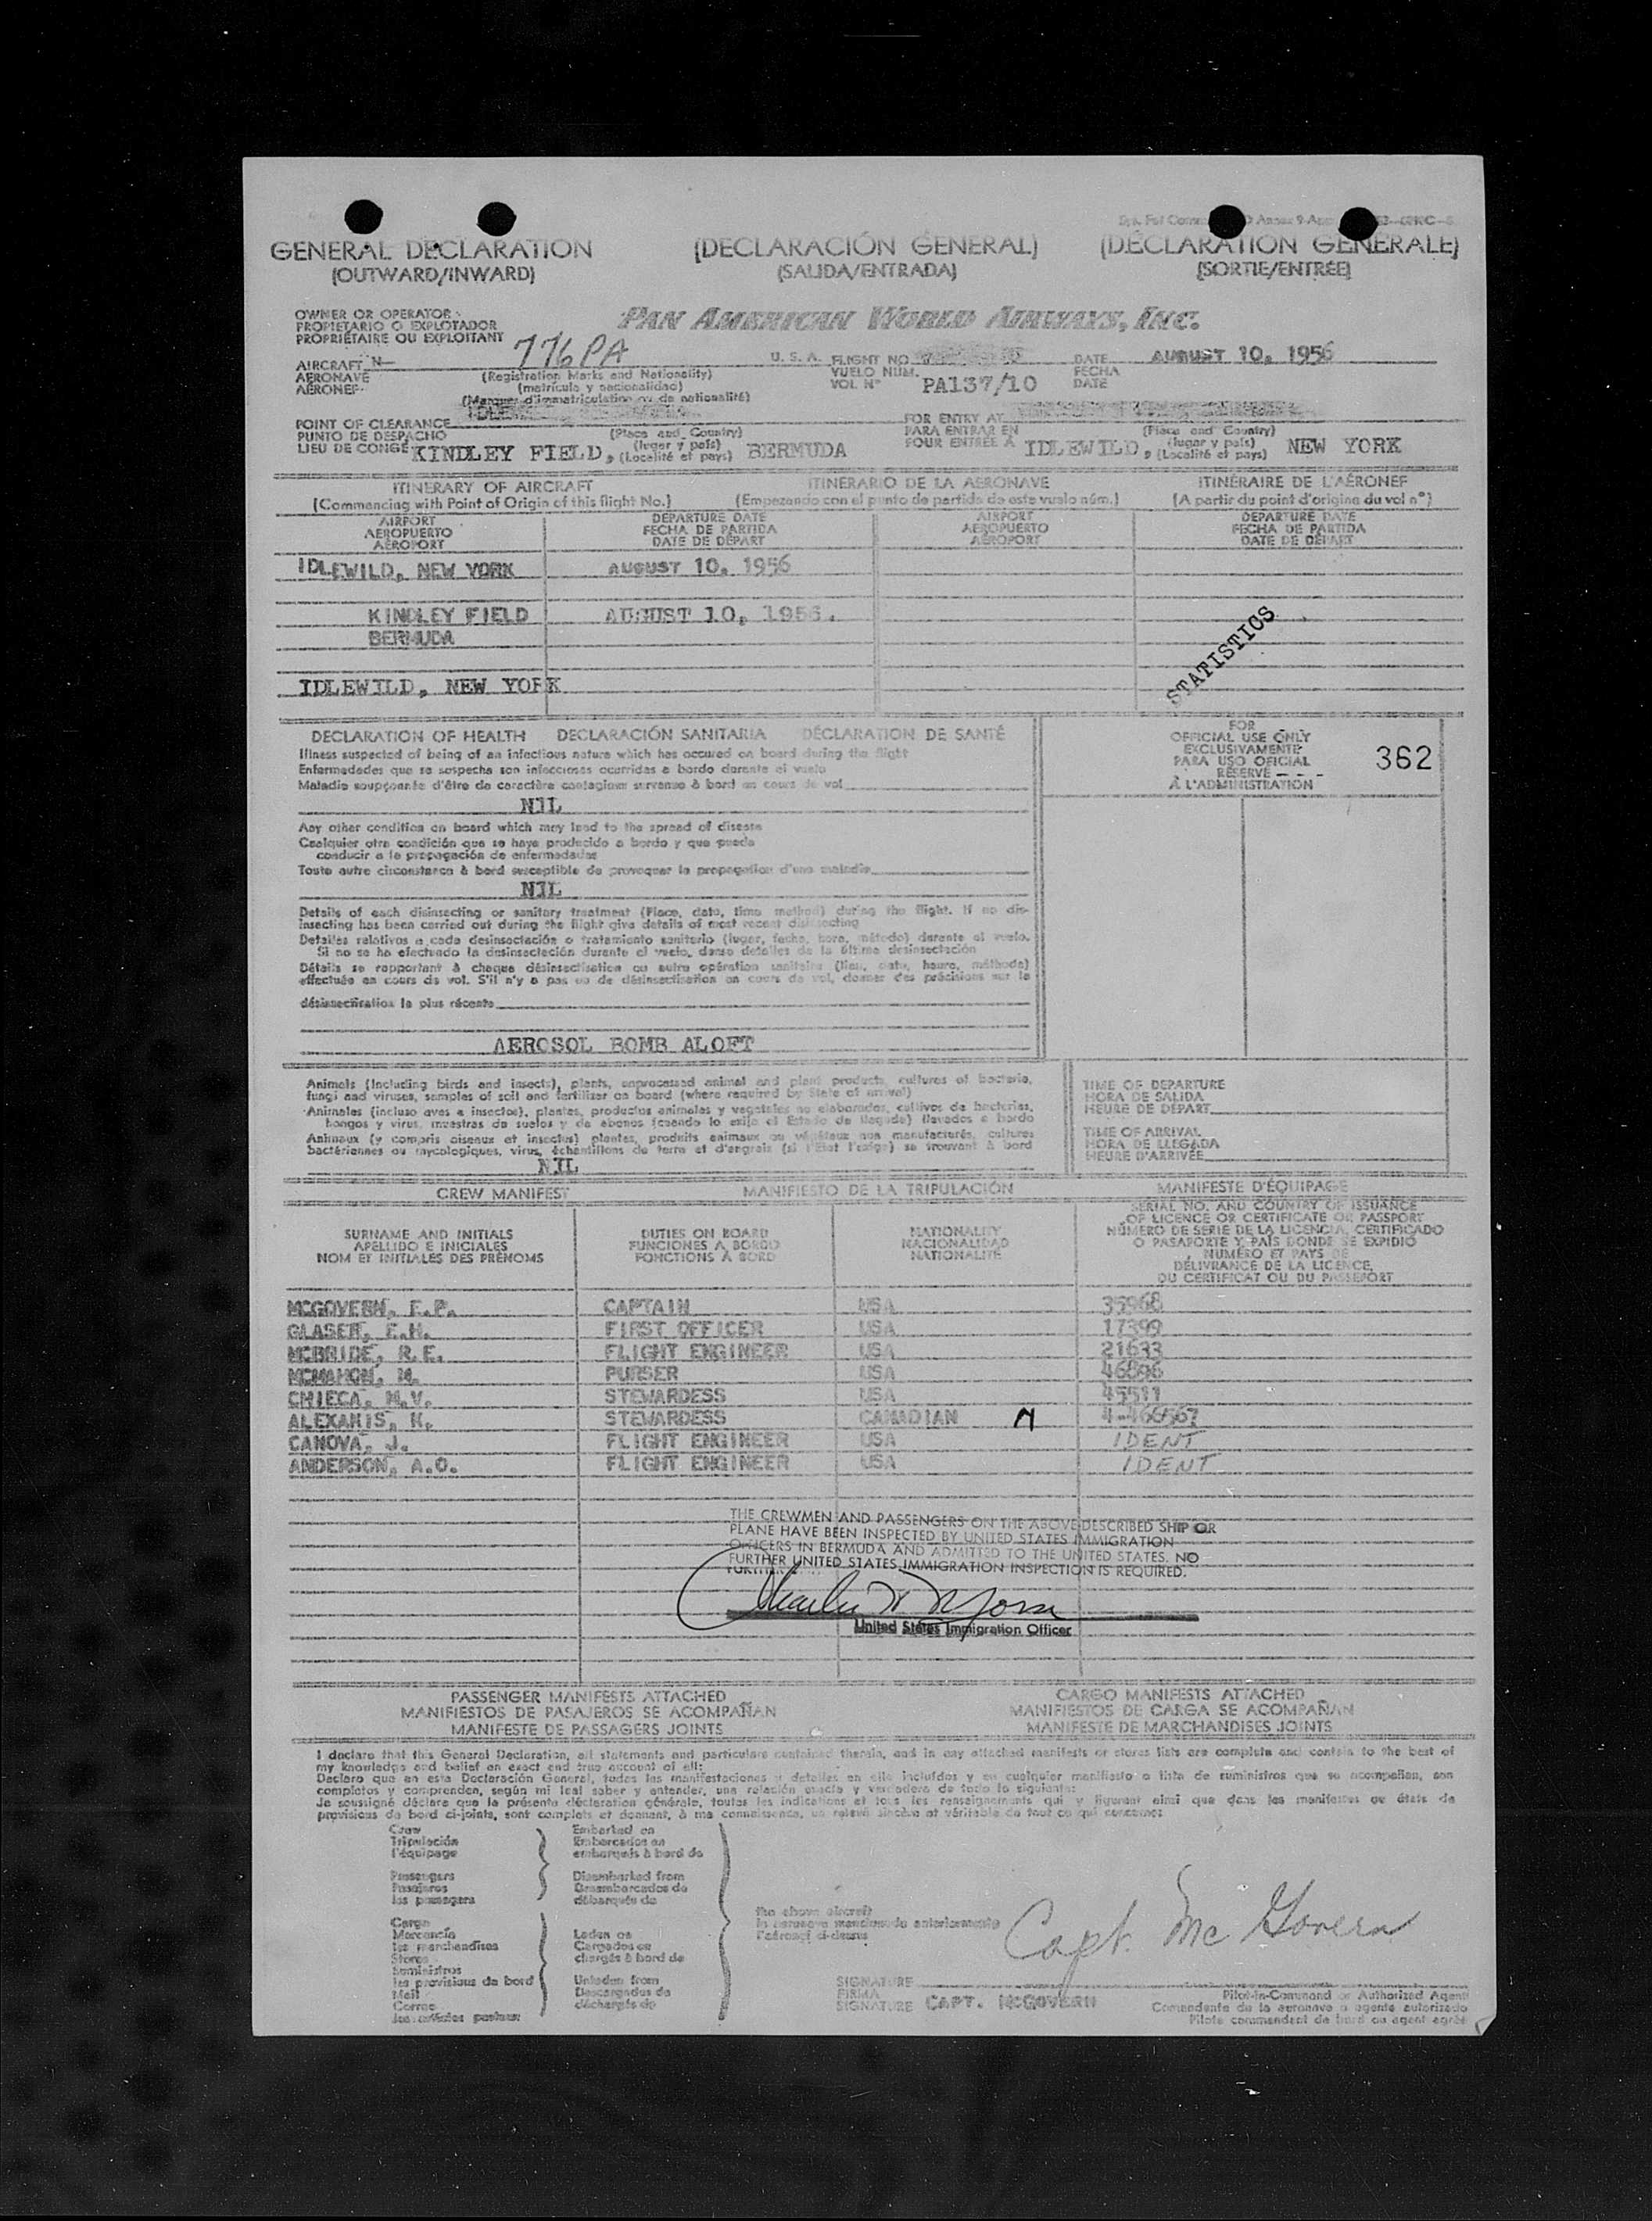 GENERAL DECLARATION (DECLARACIÓN GENERAL) (DÉCLARATION GENERALE)
(OUTWARD/INWARD) (SALIDA/ENTRADA) (SORTIE/ENTRÉE)
OWNER OR OPERATOR
PROPIETARIO O EXPLOTADOR
PROPRIÉTAIRE OU EXPLOITANT
PAN AMERICAN WORLD AIRWAYS, INC.
AIRCRAFT N 776PA U. S. A. FLIGHT NO. DATE AUGUST 10, 1956
AERONAVE (Registration Marks and Nationality) VUELO NUM. FECHA
AÉRONEF (matrícula y nacionalidad) VOL Nº PA137/10 DATE
(Marques d'immatriculation ou de nationalité)
POINT OF CLEARANCE FOR ENTRY AT
PUNTO DE DESPACHO (Place and Country) PARA ENTRAR EN (Place and Country)
LIEU DE CONGÉ KINDLEY FIELD, (lugar y país) (Localité et pays) BERMUDA POUR ENTRÉE À IDLEWILD, (lugar y país) (Localité et pays) NEW YORK
ITINERARY OF AIRCRAFT ITINERARIO DE LA AERONAVE ITINÉRAIRE DE L'AÉRONEF
(Commencing with Point of Origin of this flight No.) (Empezando con el punto de partida de este vuelo núm.) (A partir du point d'origine du vol nº)
AIRPORT DEPARTURE DATE AIRPORT DEPARTURE DATE
AEROPUERTO FECHA DE PARTIDA AEROPUERTO FECHA DE PARTIDA
AÉROPORT DATE DE DÉPART AÉROPORT DATE DE DÉPART
IDLEWILD, NEW YORK AUGUST 10, 1956
KINDLEY FIELD AUGUST 10, 1956.
BERMUDA
STATISTICS
IDLEWILD, NEW YORK
DECLARATION OF HEALTH DECLARACIÓN SANITARIA DÉCLARATION DE SANTÉ
Illness suspected of being of an infectious nature which has occured on board during the flight
Enfermedades que se sospecha son infecciosas ocurridas a bordo durante el vuelo
Maladie soupçonnée d'être de caractère contagieux survenue à bord au cours de vol
NIL
Any other condition on board which may lead to the spread of disease
Cualquier otra condición que se haya producido a bordo y que pueda
conducir a la propagación de enfermedades
Toute autre circonstance à bord susceptible de provoquer la propagation d'une maladie
NIL
Details of each disinsecting or sanitary treatment (Place, date, time method) during the flight. If no dis-
insecting has been carried out during the flight give details of most recent disinsecting
Detalles relativos a cada desinsectación o tratamiento sanitario (lugar, fecha, hora, método) durante el vuelo.
Si no se ha efectuado la desinsectación durante el vuelo, danse detalles de la última desinsectación
Détails se rapportant à chaque désinsectisation ou autre opération sanitaire (lieu, date, heure, méthode)
effectuée en cours de vol. S'il n'y a pas eu de désinsectisation en cours de vol, donner des précisions sur la
désinsectisation la plus récente
AEROSOL BOMB ALOFT
FOR
OFFICIAL USE ONLY
EXCLUSIVAMENTE
PARA USO OFICIAL
RÉSERVÉ
À L'ADMINISTRATION
362
Animals (Including birds and insects), plants, unprocessed animal and plant products, cultures of bacteria,
fungi and viruses, samples of soil and fertilizer on board (where required by State of arrival)
Animales (incluso aves e insectos), plantas, productos animales y vegetales no elaborados, cultivos de bacterias,
hongos y virus, muestras de suelos y de abonos (cuando lo exija el Estado de llegada) llevados a bordo
Animaux (y compris oiseaux et insectes) plantes, produits animaux ou végétaux non manufacturés, cultures
bactériennes ou mycologiques, virus, échantillons de terre et d'engrais (si l'État l'exige) se trouvant à bord
NIL
TIME OF DEPARTURE
HORA DE SALIDA
HEURE DE DÉPART
TIME OF ARRIVAL
HORA DE LLEGADA
HEURE D'ARRIVÉE
CREW MANIFEST MANIFIESTO DE LA TRIPULACIÓN MANIFESTE D'ÉQUIPAGE
SURNAME AND INITIALS
APELLIDO E INICIALES
NOM ET INITIALES DES PRÉNOMS
DUTIES ON BOARD
FUNCIONES A BORDO
FONCTIONS À BORD
NATIONALITY
NACIONALIDAD
NATIONALITÉ
SERIAL NO. AND COUNTRY OF ISSUANCE
OF LICENCE OR CERTIFICATE OR PASSPORT
NÚMERO DE SERIE DE LA LICENCIA, CERTIFICADO
O PASAPORTE Y PAÍS DONDE SE EXPIDIÓ
NUMÉRO ET PAYS DE
DÉLIVRANCE DE LA LICENCE,
DU CERTIFICAT OU DU PASSEPORT
MCGOVERN, E.P. CAPTAIN USA 35968
GLASER, E.H. FIRST OFFICER USA 17399
MCBRIDE, R.E. FLIGHT ENGINEER USA 21633
MCMAHON, M. PURSER USA 46896
CHIECA, M.V. STEWARDESS USA 45511
ALEXAKIS, H. STEWARDESS CANADIAN 4-466567
CANOVA, J. FLIGHT ENGINEER USA IDENT
ANDERSON, A.O. FLIGHT ENGINEER USA IDENT
THE CREWMEN AND PASSENGERS ON THE ABOVE DESCRIBED SHIP OR
PLANE HAVE BEEN INSPECTED BY UNITED STATES IMMIGRATION
OFFICERS IN BERMUDA AND ADMITTED TO THE UNITED STATES. NO
FURTHER UNITED STATES IMMIGRATION INSPECTION IS REQUIRED.
United States Immigration Officer
PASSENGER MANIFESTS ATTACHED CARGO MANIFESTS ATTACHED
MANIFIESTOS DE PASAJEROS SE ACOMPAÑAN MANIFIESTOS DE CARGA SE ACOMPAÑAN
MANIFESTE DE PASSAGERS JOINTS MANIFESTE DE MARCHANDISES JOINTS
I declare that this General Declaration, all statements and particulars contained therein, and in any attached manifests or stores lists are complete and contain to the best of
my knowledge and belief an exact and true account of all:
Declaro que en esta Declaración General, todas las manifestaciones y detalles en ella incluídos y en cualquier manifiesto o lista de suministros que se acompañan, son
completos y comprenden, según mi leal saber y entender, una relación exacta y verdadera de todo lo siguiente:
Je soussigné déclare que la présente déclaration générale, toutes les indications et tous les renseignements qui y figurent ainsi que dans les manifestes ou états de
provisions de bord ci-joints, sont complets et donnent, à ma connaissance, un relevé sincère et véritable de tout ce qui concerne:
Crew Embarked on
Tripulación Embarcados en
l'équipage embarqués à bord de
Passengers Disembarked from
Pasajeros Desembarcados de
les passagers débarqués de
Cargo
Mercancía Laden on
les marchandises Cargados en
Stores chargés à bord de
Suministros
les provisions de bord Unladen from
Mail Descargados de
Correo déchargés de
les articles postaux
the above aircraft
la aeronave mencionada anteriormente
l'aéronef ci-dessus
Capt. McGovern
SIGNATURE Pilot-in-Command or Authorized Agent
FIRMA Comandante de la aeronave o agente autorizado
SIGNATURE CAPT. MCGOVERN Pilote commandant de bord ou agent agréé